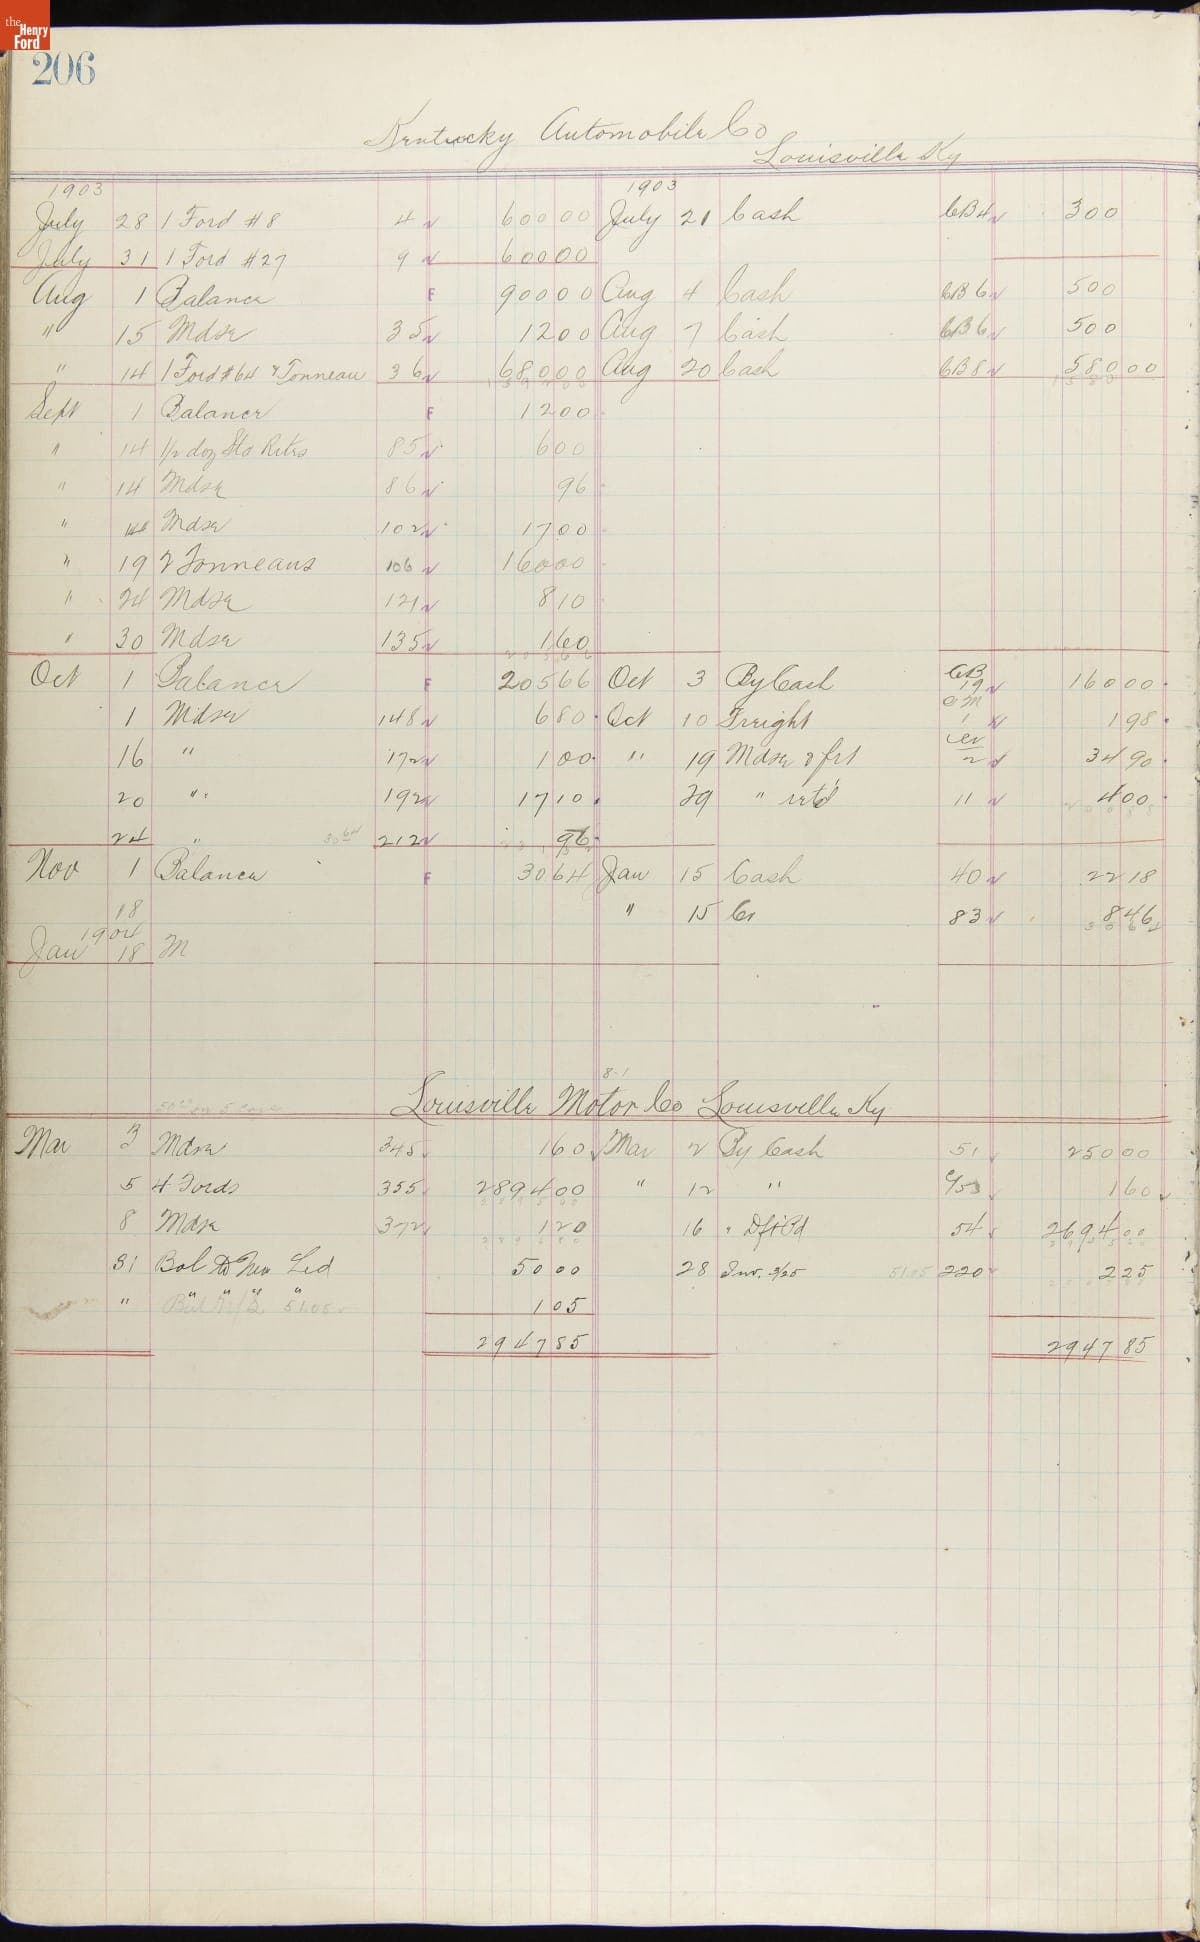 the Henry Ford
206
Kentucky Automobile Co
Louisville Ky
1903 1903
July 28 1 Ford #8 4 600 00 July 21 Cash CB4 300
July 31 1 Ford #27 9 600 00
Aug 1 Balance F 900 00 Aug 4 Cash CB6 500
" 15 Mdse 35 12 00 Aug 7 Cash CB6 500
" 14 1 Ford #64 & Tonneau 36 680 00 Aug 20 Cash CB8 580 00
Sept 1 Balance F 12 00
" 14 1/2 doz Sta Rites 85 6 00
" 14 Mdse 86 96
" Mdse 102 17 00
" 19 2 Tonneaus 106 160 00
" 24 Mdse 121 8 10
" 30 Mdse 135 1 60
Oct 1 Balance F 205 66 Oct 3 By Cash CB 19 160 00
1 Mdse 148 6 80 Oct 10 Freight 1 1 98
16 " 172 1 00 " 19 Mdse & frt 2 34 90
20 " 192 17 10 29 " ret'd 11 4 00
24 " 30 64 212 96
Nov 1 Balance F 30 64 Jan 15 Cash 40 22 18
18 " 15 Cr 83 8 46
1904
Jan 18 M
8-1
Louisville Motor Co Louisville Ky
50 00 on 5 cars
Mar 3 Mdse 345 1 60 Mar 2 By Cash 51 250 00
5 4 Fords 355 2894 00 " 12 " 53 1 60
8 Mdse 372 1 20 16 " Dft Pd 54 2694 00
31 Bal To New Led 50 00 28 Inv. 3/25 51.05 220 2 25
" " " " " 51.05 1 05
2947 85 2947 85